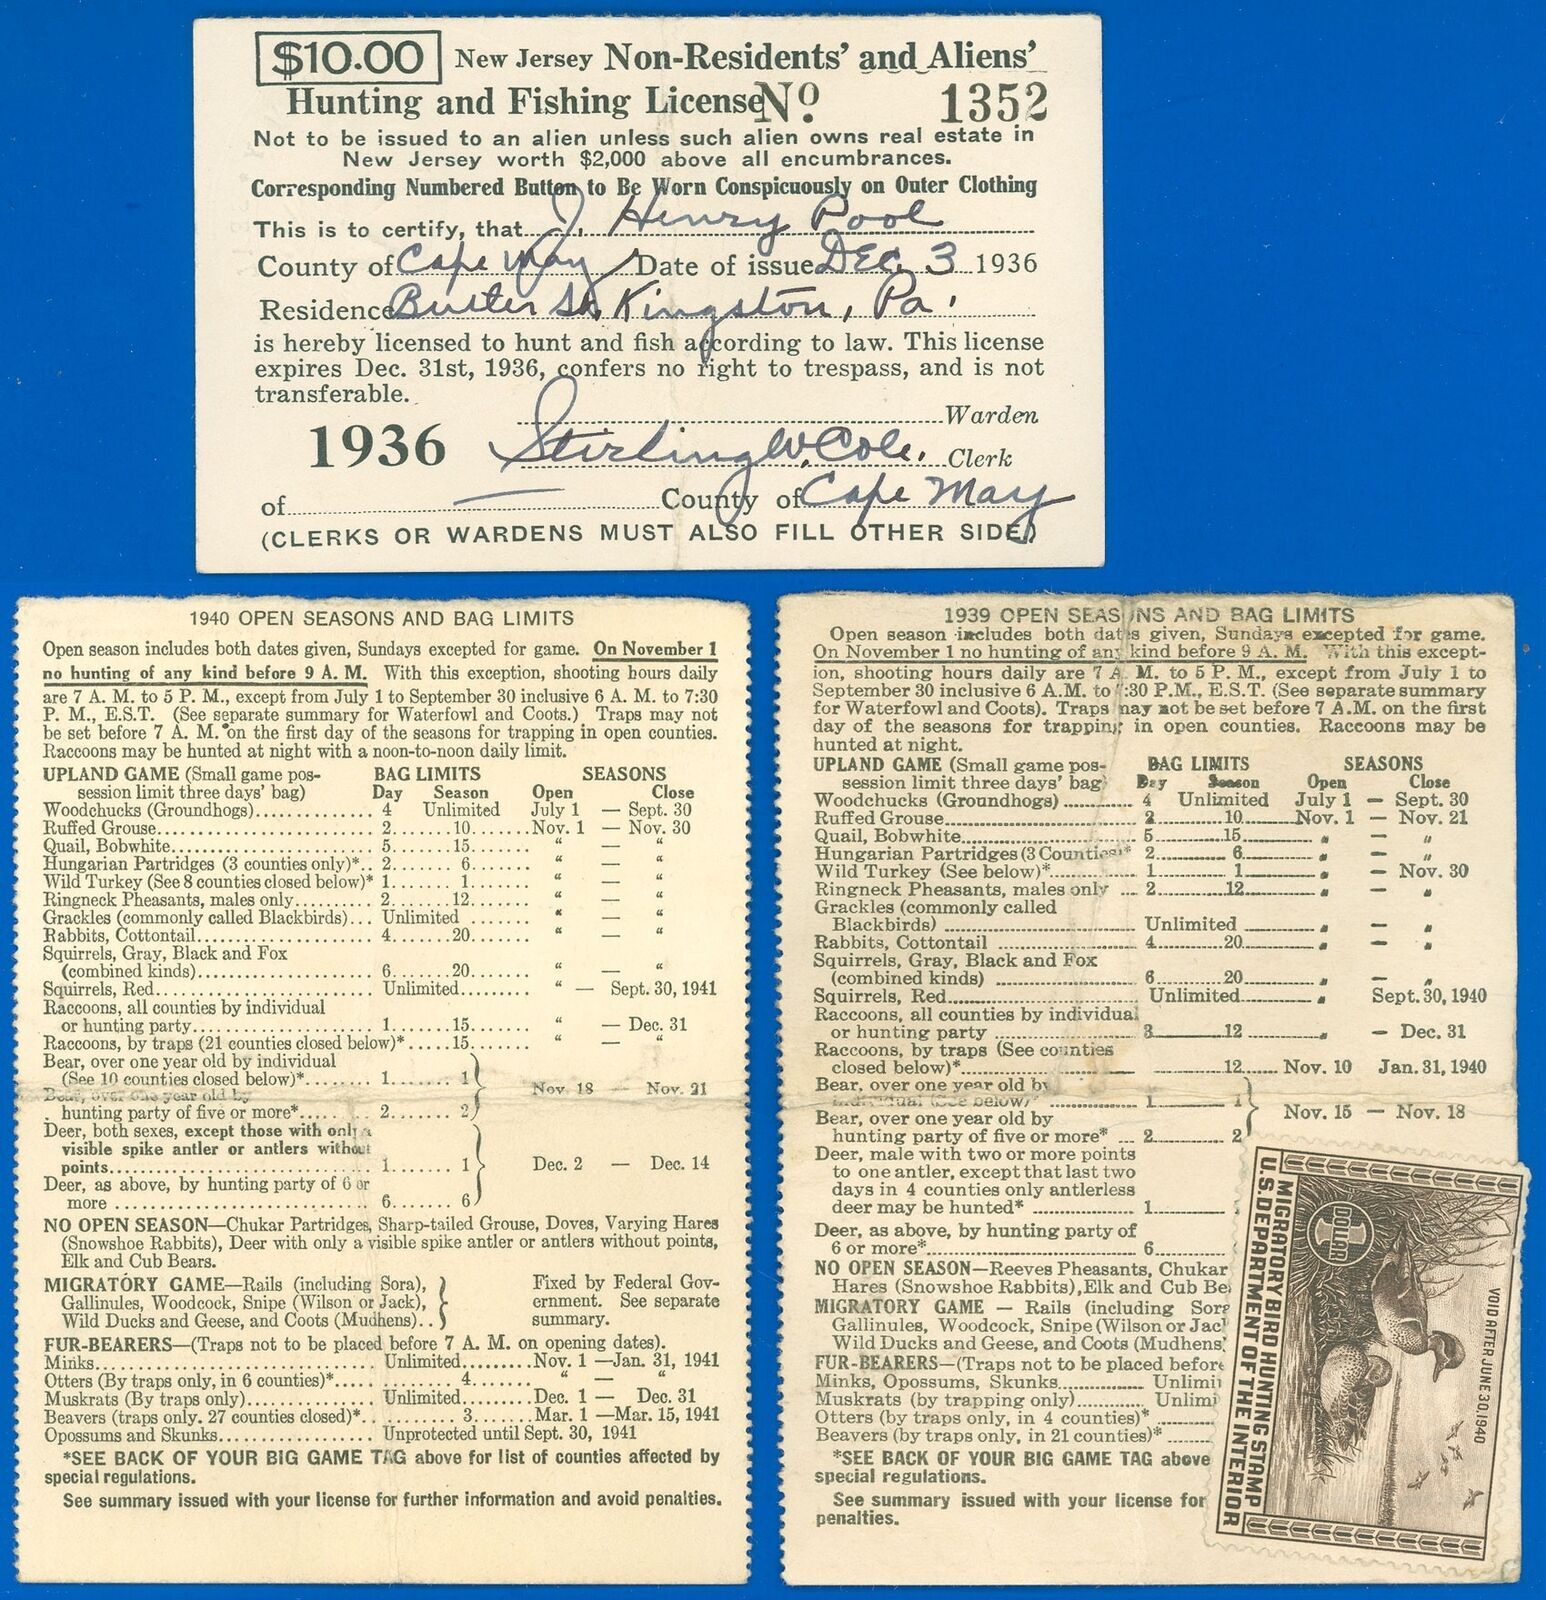 $10.00 New Jersey Non-Residents' and Aliens'
Hunting and Fishing License No. 1352
Not to be issued to an alien unless such alien owns real estate in
New Jersey worth $2,000 above all encumbrances.
Corresponding Numbered Button to Be Worn Conspicuously on Outer Clothing
This is to certify, that J. Henry Pool
County of Cape May Date of issue Dec. 3 1936
Residence Butler St. Kingston, Pa.
is hereby licensed to hunt and fish according to law. This license
expires Dec. 31st, 1936, confers no right to trespass, and is not
transferable.
Warden
1936 Stirling W. Cole. Clerk
of County of Cape May
(CLERKS OR WARDENS MUST ALSO FILL OTHER SIDE)
1940 OPEN SEASONS AND BAG LIMITS
Open season includes both dates given, Sundays excepted for game. On November 1
no hunting of any kind before 9 A. M. With this exception, shooting hours daily
are 7 A. M. to 5 P. M., except from July 1 to September 30 inclusive 6 A. M. to 7:30
P. M., E.S.T. (See separate summary for Waterfowl and Coots.) Traps may not
be set before 7 A. M. on the first day of the seasons for trapping in open counties.
Raccoons may be hunted at night with a noon-to-noon daily limit.
UPLAND GAME (Small game pos- BAG LIMITS SEASONS
session limit three days' bag) Day Season Open Close
Woodchucks (Groundhogs).............. 4 Unlimited July 1 — Sept. 30
Ruffed Grouse......................... 2.......10.......Nov. 1 — Nov. 30
Quail, Bobwhite....................... 5.......15....... " — "
Hungarian Partridges (3 counties only)*.. 2....... 6....... " — "
Wild Turkey (See 8 counties closed below)* 1....... 1....... " — "
Ringneck Pheasants, males only......... 2.......12....... " — "
Grackles (commonly called Blackbirds)... Unlimited ....... " — "
Rabbits, Cottontail..................... 4.......20....... " — "
Squirrels, Gray, Black and Fox
(combined kinds)..................... 6.......20....... " — "
Squirrels, Red......................... Unlimited......... " — Sept. 30, 1941
Raccoons, all counties by individual
or hunting party..................... 1.......15....... " — Dec. 31
Raccoons, by traps (21 counties closed below)*.....15....... " — "
Bear, over one year old by individual
(See 10 counties closed below)*........ 1....... 1
Bear, over one year old by Nov. 18 — Nov. 21
hunting party of five or more*........ 2....... 2
Deer, both sexes, except those with only a
visible spike antler or antlers without
points............................... 1....... 1 Dec. 2 — Dec. 14
Deer, as above, by hunting party of 6 or
more ............................... 6....... 6
NO OPEN SEASON—Chukar Partridges, Sharp-tailed Grouse, Doves, Varying Hares
(Snowshoe Rabbits), Deer with only a visible spike antler or antlers without points,
Elk and Cub Bears.
MIGRATORY GAME—Rails (including Sora), Fixed by Federal Gov-
Gallinules, Woodcock, Snipe (Wilson or Jack), ernment. See separate
Wild Ducks and Geese, and Coots (Mudhens).. summary.
FUR-BEARERS—(Traps not to be placed before 7 A. M. on opening dates).
Minks................................. Unlimited.........Nov. 1 —Jan. 31, 1941
Otters (By traps only, in 6 counties)*............... 4....... " — "
Muskrats (By traps only)................ Unlimited.........Dec. 1 — Dec. 31
Beavers (traps only. 27 counties closed)*............ 3.......Mar. 1 —Mar. 15, 1941
Opossums and Skunks................... Unprotected until Sept. 30, 1941
*SEE BACK OF YOUR BIG GAME TAG above for list of counties affected by
special regulations.
See summary issued with your license for further information and avoid penalties.
1939 OPEN SEASONS AND BAG LIMITS
Open season includes both dates given, Sundays excepted for game.
On November 1 no hunting of any kind before 9 A. M. With this except-
ion, shooting hours daily are 7 A. M. to 5 P.M., except from July 1 to
September 30 inclusive 6 A.M. to 7:30 P.M., E.S.T. (See separate summary
for Waterfowl and Coots). Traps may not be set before 7 A.M. on the first
day of the seasons for trapping in open counties. Raccoons may be
hunted at night.
UPLAND GAME (Small game pos- BAG LIMITS SEASONS
session limit three days' bag) Day Season Open Close
Woodchucks (Groundhogs) ............ 4 Unlimited July 1 — Sept. 30
Ruffed Grouse........................ 2.......10.......Nov. 1 — Nov. 21
Quail, Bobwhite...................... 5.......15....... " — "
Hungarian Partridges (3 Counties)* 2....... 6....... " — "
Wild Turkey (See below)*............ 1....... 1....... " — Nov. 30
Ringneck Pheasants, males only ... 2.......12....... " — "
Grackles (commonly called
Blackbirds) ...................... Unlimited ....... " — "
Rabbits, Cottontail .................. 4.......20....... " — "
Squirrels, Gray, Black and Fox
(combined kinds) .................. 6.......20....... " — "
Squirrels, Red........................ Unlimited....... " Sept. 30, 1940
Raccoons, all counties by individual
or hunting party .................. 3.......12....... " — Dec. 31
Raccoons, by traps (See counties
closed below)*.......................12....... Nov. 10 Jan. 31, 1940
Bear, over one year old by
individual (See below)* ............ 1....... 1
Bear, over one year old by Nov. 15 — Nov. 18
hunting party of five or more* ... 2....... 2
Deer, male with two or more points
to one antler, except that last two
days in 4 counties only antlerless
deer may be hunted* ............... 1.......
Deer, as above, by hunting party of
6 or more*........................... 6.......
NO OPEN SEASON—Reeves Pheasants, Chukar
Hares (Snowshoe Rabbits), Elk and Cub Be
MIGRATORY GAME — Rails (including Sora
Gallinules, Woodcock, Snipe (Wilson or Jac
Wild Ducks and Geese, and Coots (Mudhens
FUR-BEARERS—(Traps not to be placed before
Minks, Opossums, Skunks............... Unlimi
Muskrats (by trapping only)............ Unlimi
Otters (by traps only, in 4 counties)* ............
Beavers (by traps only, in 21 counties)* .........
*SEE BACK OF YOUR BIG GAME TAG above
special regulations.
See summary issued with your license for
penalties.
MIGRATORY BIRD HUNTING STAMP
U.S. DEPARTMENT OF THE INTERIOR
1 DOLLAR
VOID AFTER JUNE 30, 1940